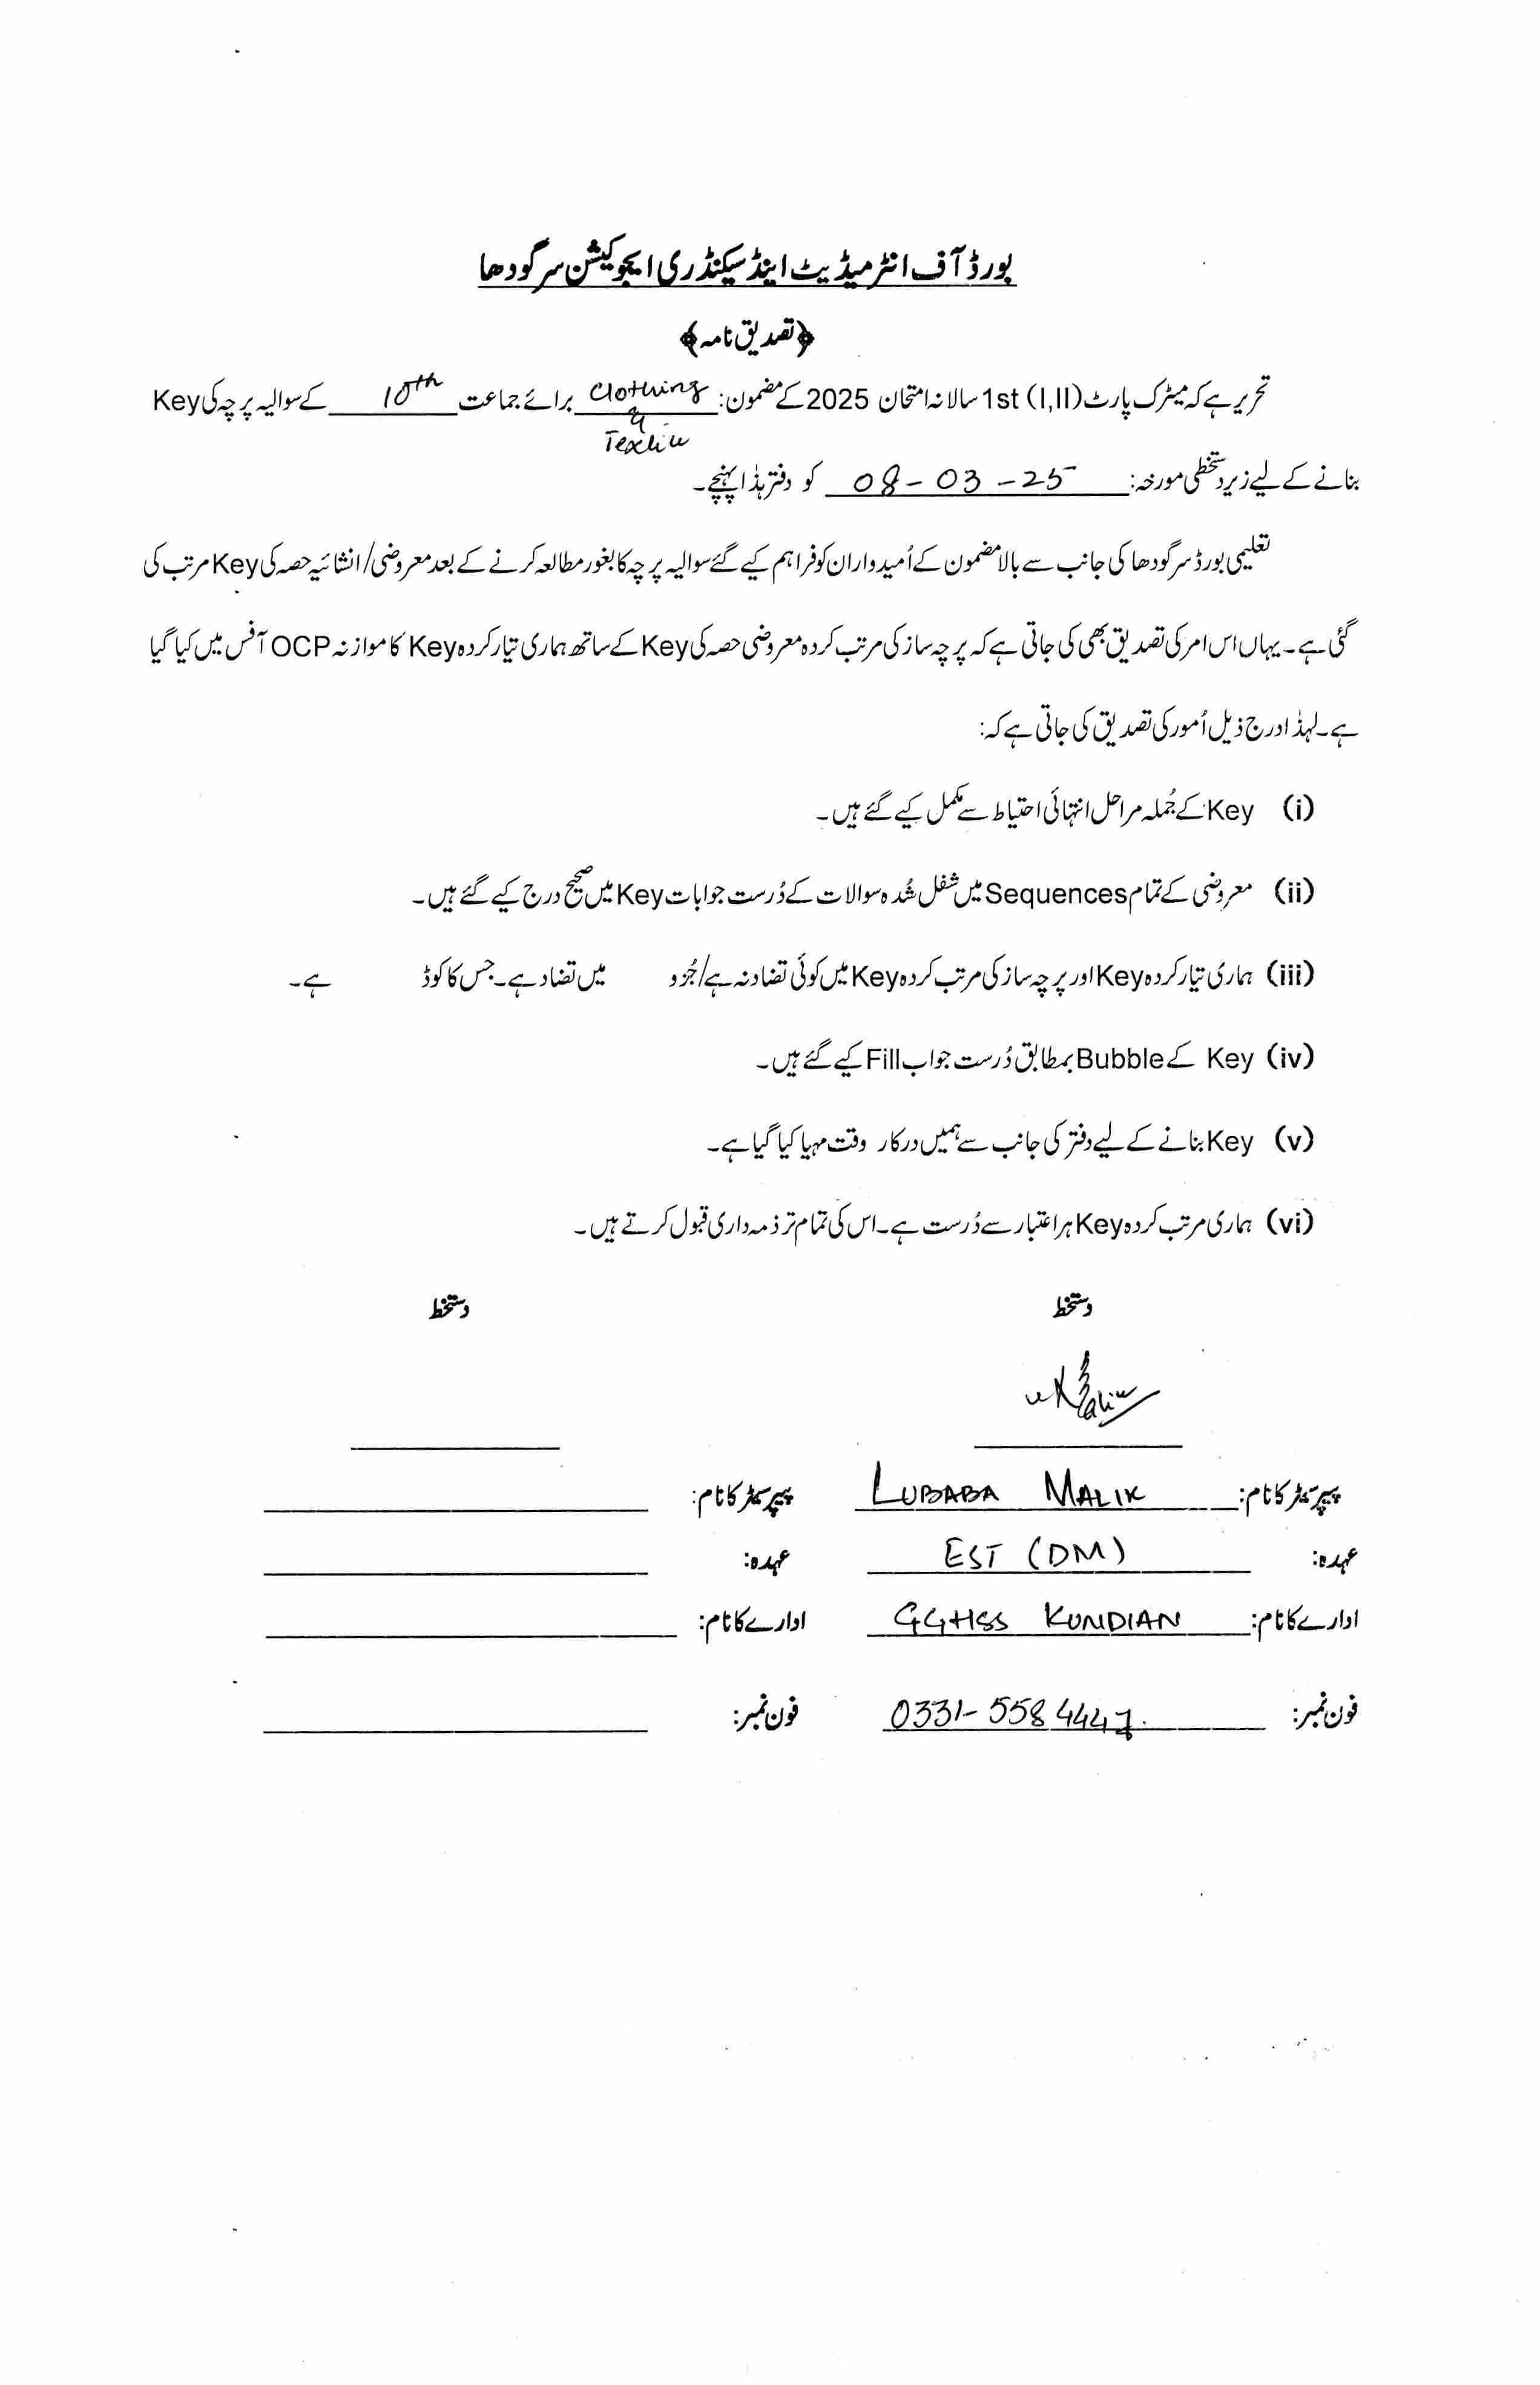 بورڈ آف انٹرمیڈیٹ اینڈ سیکنڈری ایجوکیشن سرگودھا
﴿تصدیق نامہ﴾
تحریر ہے کہ میٹرک پارٹ (I,II) 1st سالانہ امتحان 2025 کے مضمون: Clothing & Textile برائے جماعت 10th کے سوالیہ پرچہ کی Key
بنانے کے لیے زیر دستخطی مورخہ: 08-03-25 کو دفتر ہذا پہنچے۔
تعلیمی بورڈ سرگودھا کی جانب سے بالا مضمون کے اُمیدواران کو فراہم کیے گئے سوالیہ پرچہ کا بغور مطالعہ کرنے کے بعد معروضی/انشائیہ حصہ کی Key مرتب کی
گئی ہے۔ یہاں اس امر کی تصدیق بھی کی جاتی ہے کہ پرچہ ساز کی مرتب کردہ معروضی حصہ کی Key کے ساتھ ہماری تیار کردہ Key کا موازنہ OCP آفس میں کیا گیا
ہے۔ لہذٰا درج ذیل اُمور کی تصدیق کی جاتی ہے کہ:
(i) Key کے جُملہ مراحل انتہائی احتیاط سے مکمل کیے گئے ہیں۔
(ii) معروضی کے تمام Sequences میں شفل شُدہ سوالات کے دُرست جوابات Key میں صحیح درج کیے گئے ہیں۔
(iii) ہماری تیار کردہ Key اور پرچہ ساز کی مرتب کردہ Key میں کوئی تضاد نہ ہے/جُزو میں تضاد ہے۔ جس کا کوڈ ہے۔
(iv) Key کے Bubble بمطابق دُرست جواب Fill کیے گئے ہیں۔
(v) Key بنانے کے لیے دفتر کی جانب سے ہمیں درکار وقت مہیا کیا گیا ہے۔
(vi) ہماری مرتب کردہ Key ہر اعتبار سے دُرست ہے۔ اس کی تمام تر ذمہ داری قبول کرتے ہیں۔
دستخط دستخط
پیپر سیٹر کا نام: LUBABA MALIK پیپر سیٹر کا نام:
عہدہ: EST (DM) عہدہ:
ادارے کا نام: GGHSS KUNDIAN ادارے کا نام:
فون نمبر: 0331-5584447 فون نمبر: